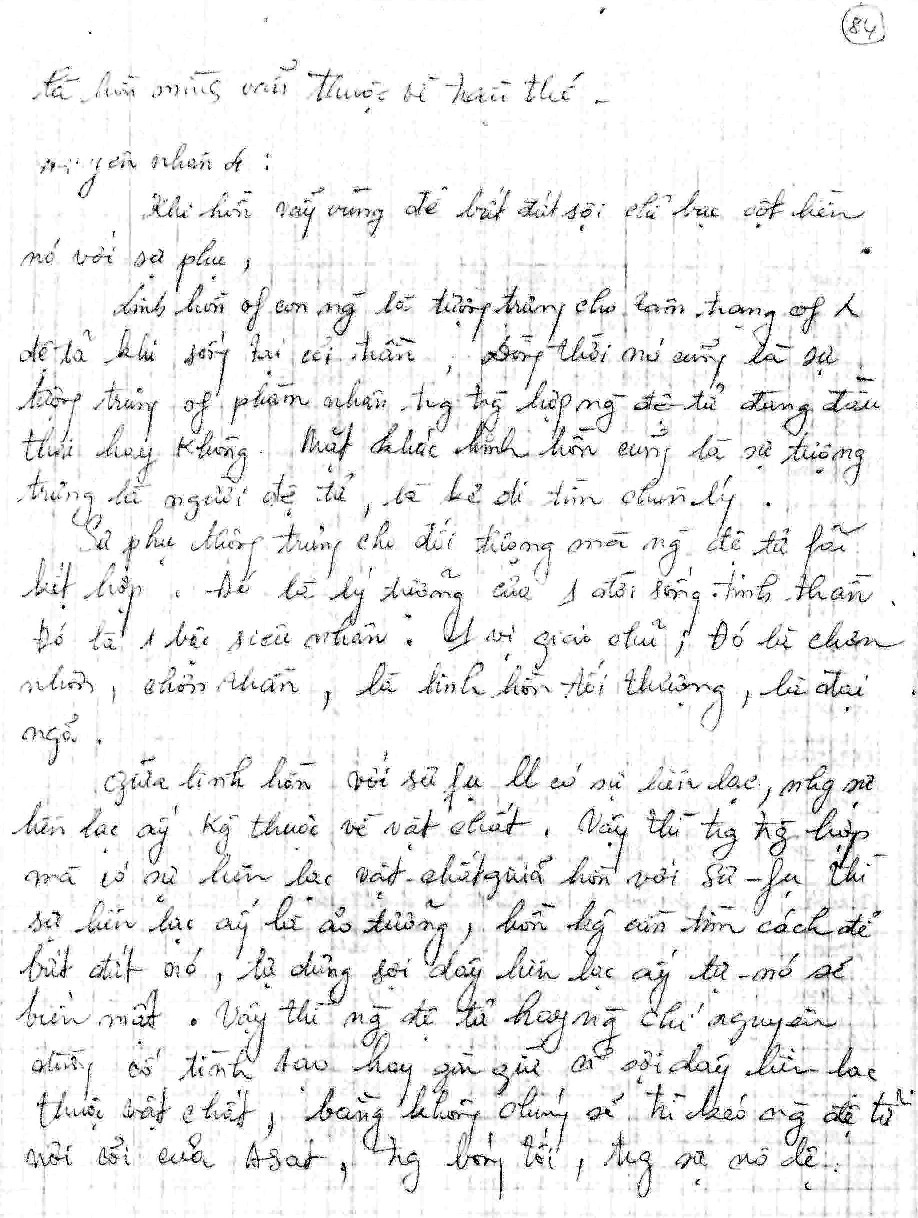 84
là hồn mình vẫn thuộc về trần thế -
nguyên nhân 4 :
Khi hồn vẫy vùng để bứt đứt sợi chỉ bạc cột liền
nó với sư phụ ,
linh hồn of con ng là tượng trưng cho tâm trạng of 1
đệ tử khi sống tại cõi trần , đồng thời nó cũng là sự
tượng trưng of phàm nhân trg trg hợp ng đệ tử đang đầu
thai hay không. Mặt khác linh hồn cũng là sự tượng
trưng là người đệ tử , là kẻ đi tìm chơn lý .
Sư phụ tượng trưng cho đối tượng mà ng đệ tử fải
kết hợp . Đó là lý tưởng của 1 đời sống tinh thần .
Đó là 1 bậc siêu nhân . 1 vị giáo chủ ; Đó là chơn
nhơn , chơn thần , là linh hồn tối thượng , là đại
ngã .
Giữa linh hồn với sư fụ có sự liên lạc , nhg sự
liên lạc ấy kg thuộc về vật chất . Vậy thì trg trg hợp
mà có sự liên lạc vật-chất giữa hồn với Sư-fụ thì
sự liên lạc ấy là ảo tưởng , hồn kg cần tìm cách để
bứt đứt nó , tự dưng sợi dây liên lạc ấy tự nó sẽ
biến mất . Vậy thì ng đệ tử hay ng chí nguyện
đừng cố tình tạo hay gìn giữ cái sợi dây liên lạc
thuộc vật chất , bằng không chúng sẽ trì kéo ng đệ tử
nơi cõi của Asat , trg bóng tối , trg sự nô lệ .